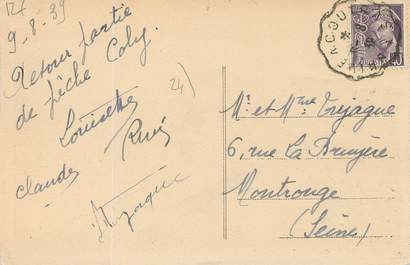 9-8-39
Retour partie
de pêche Coly.
Louisette
René
Claude
24)
Mr et Mme Trijague
6, rue La Bruyère
Montrouge
(Seine)